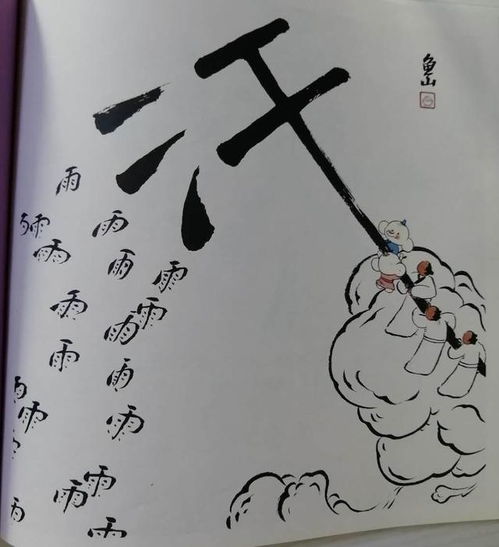 汗
鱼山
雨
雨
雨
雨
雨
雨
雨
雨
雨
雨
雨
雨
雨
雨
雨
雨
雨
雨